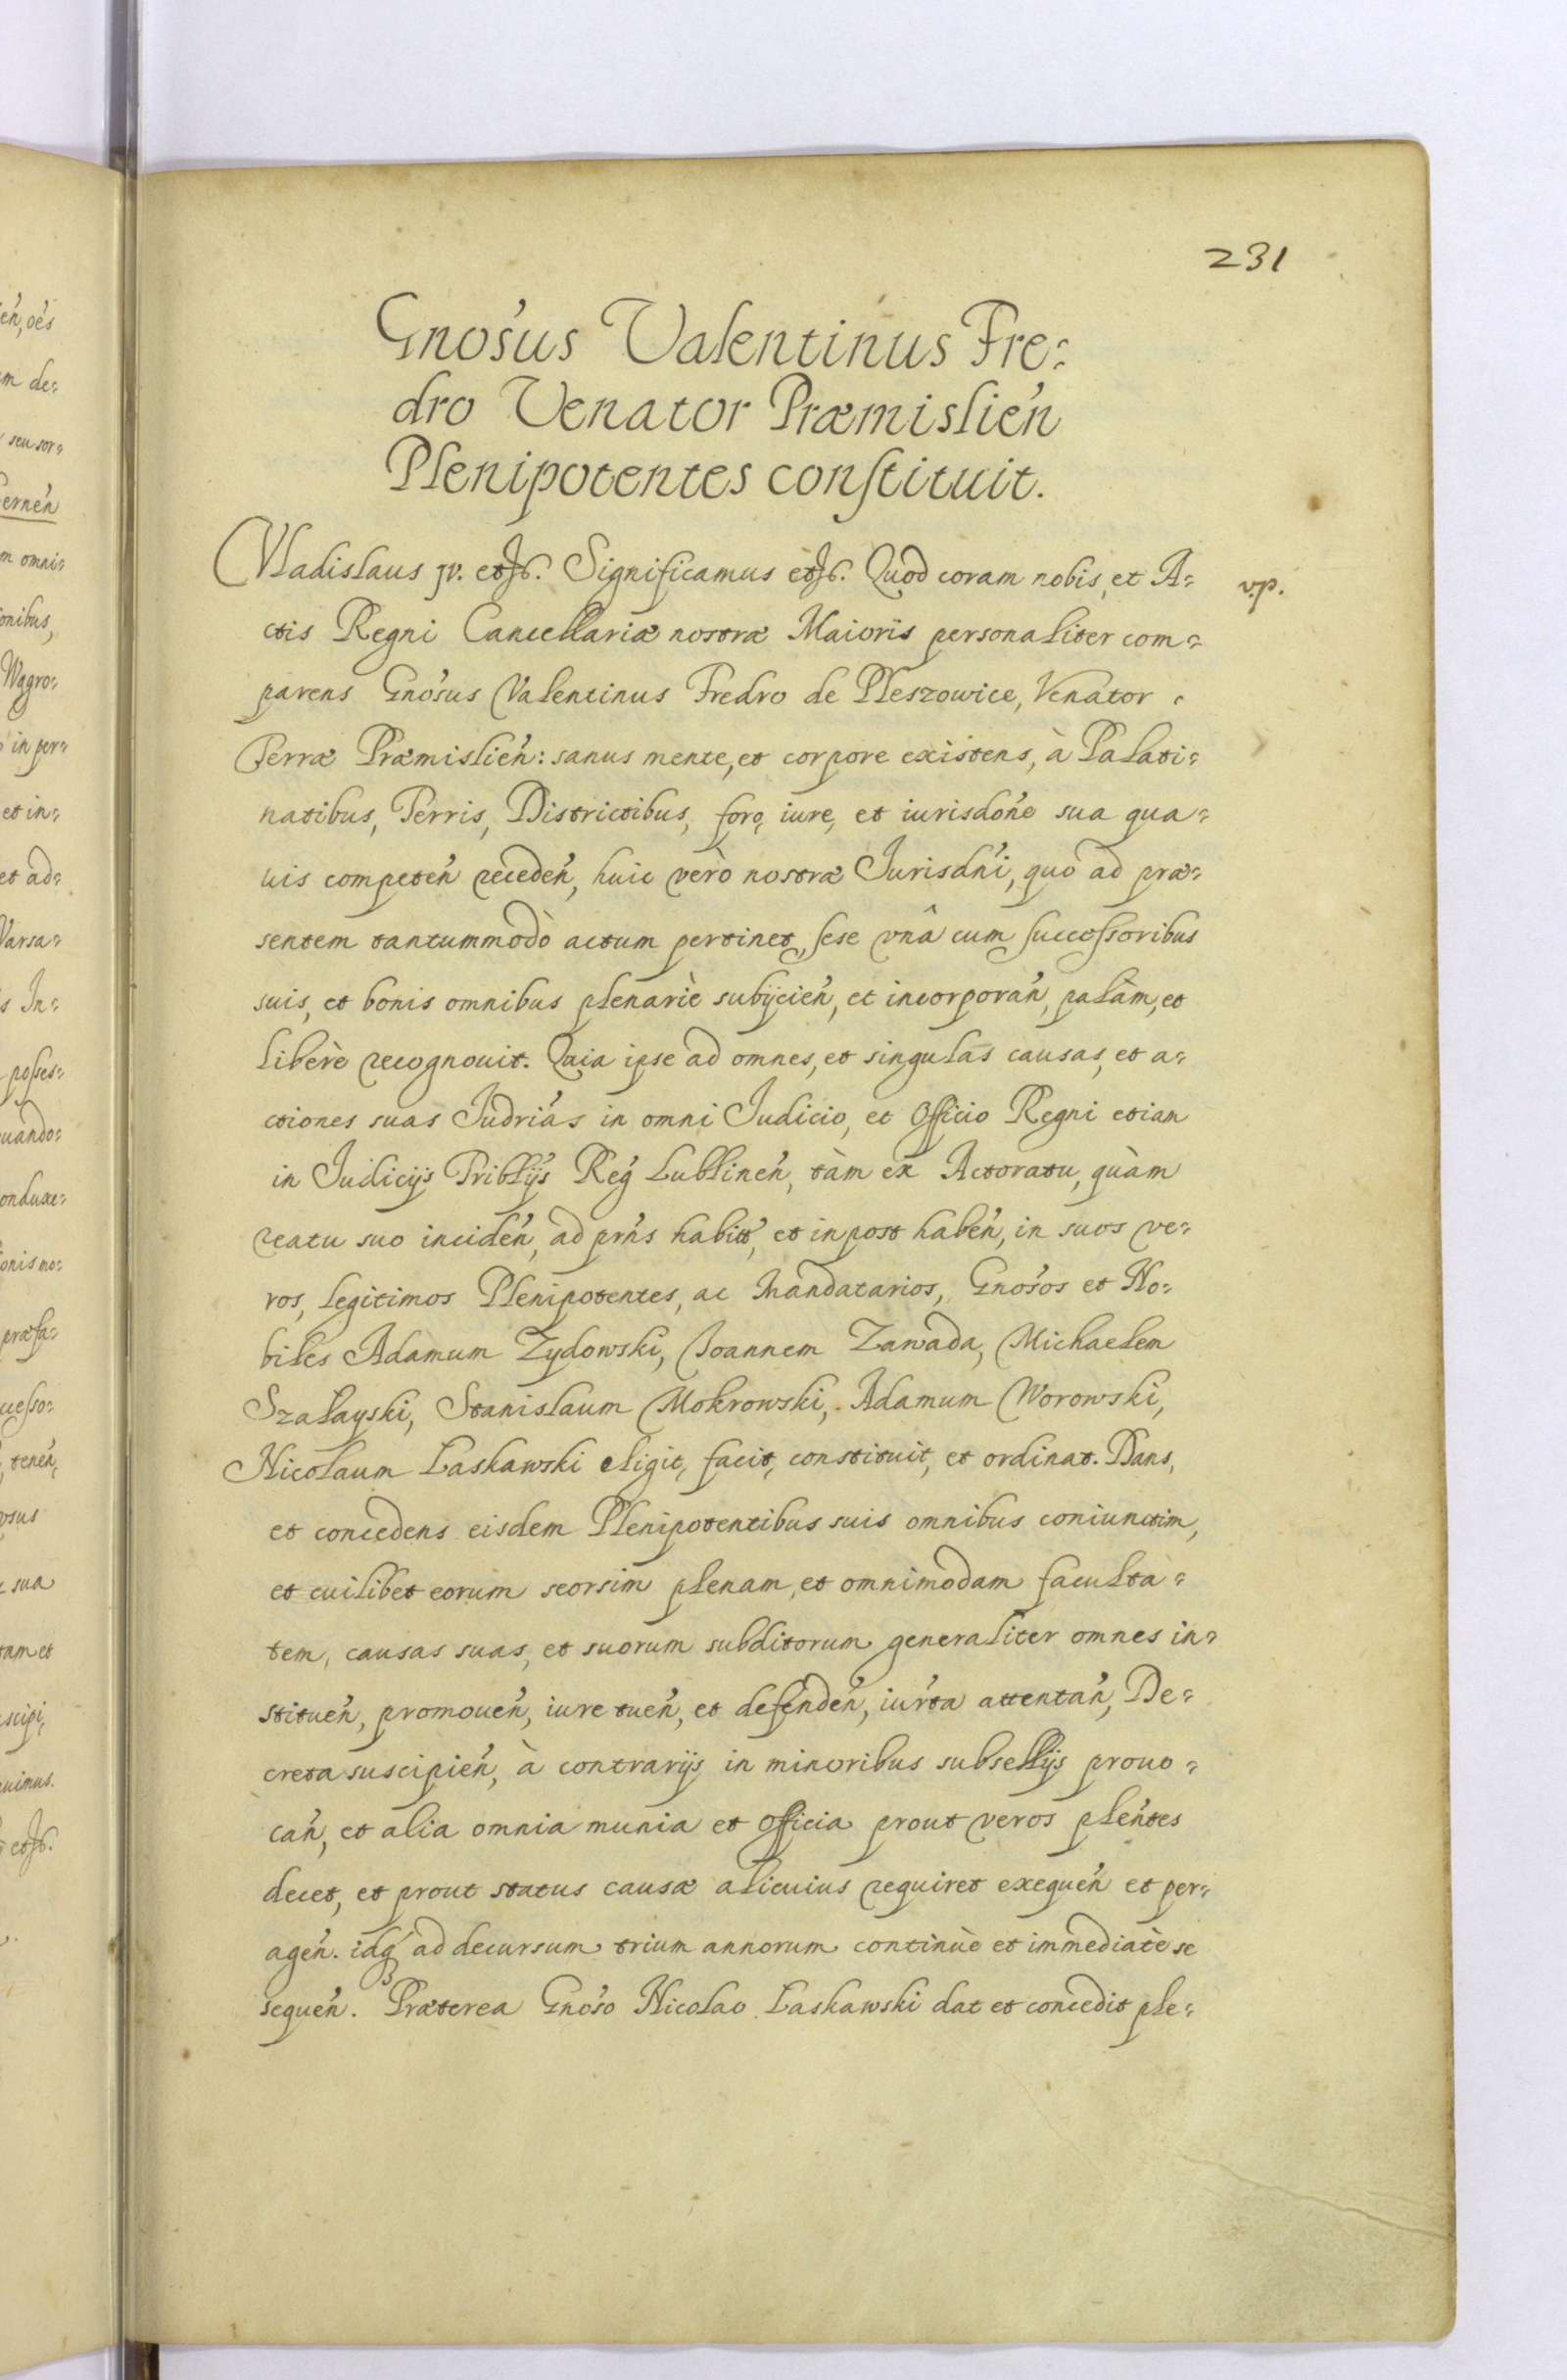 231
Gnosus Valentinus Fre=
dro Venator Præmislień
Plenipotentes constituit.
Vladislaus IV. etc. Significamus etc. Quod coram nobis, et A= v.p.
ctis Regni Cancellariæ nostræ Maioris personaliter com=
parens Gnosus Valentinus Fredro de Pleszowice, Venator
Terræ Præmislień: sanus mente, et corpore existens, à Palati=
natibus, Terris, Districtibus, foro, iure, et iurisdone sua qua=
uis competeń recedeń, huic verò nostræ Jurisdni, quo ad præ=
sentem tantummodò actum pertinet, sese vnâ cum successoribus
suis, et bonis omnibus plenariè subijcień, et incorporań, palàm, et
liberè recognouit. Quia ipse ad omnes, et singulas causas, et a=
ctiones suas Judrias in omni Judicio, et Officio Regni etiam
in Judicijs Triblijs Reg Lublineń, tàm ex Actoratu, quàm
reatu suo incideń, ad prns habit, et inpost habeń, in suos ve=
ros, legitimos Plenipotentes, ac Mandatarios, Gnosos et No=
biles Adamum Zydowski, Joannem Zawada, Michaelem
Szalayski, Stanislaum Mokrowski, Adamum Worowski,
Nicolaum Laskawski eligit, facit, constituit, et ordinat. Dans,
et concedens eisdem Plenipotentibus suis omnibus coniunctim,
et cuilibet eorum seorsim plenam, et omnimodam faculta=
tem, causas suas, et suorum subditorum generaliter omnes in=
stitueń, promoueń, iure tueń, et defendeń, iurta attentań, De=
creta suscipień, à contrarijs in minoribus subsellijs prouo=
cań, et alia omnia munia et Officia prout veros plentes
decet, et prout status causæ alicuius requiret exequeń et per=
ageń. idq3 ad decursum trium annorum continuè et immediatè se
sequeń. Præterea Gnoso Nicolao Laskawski dat et concedit ple=